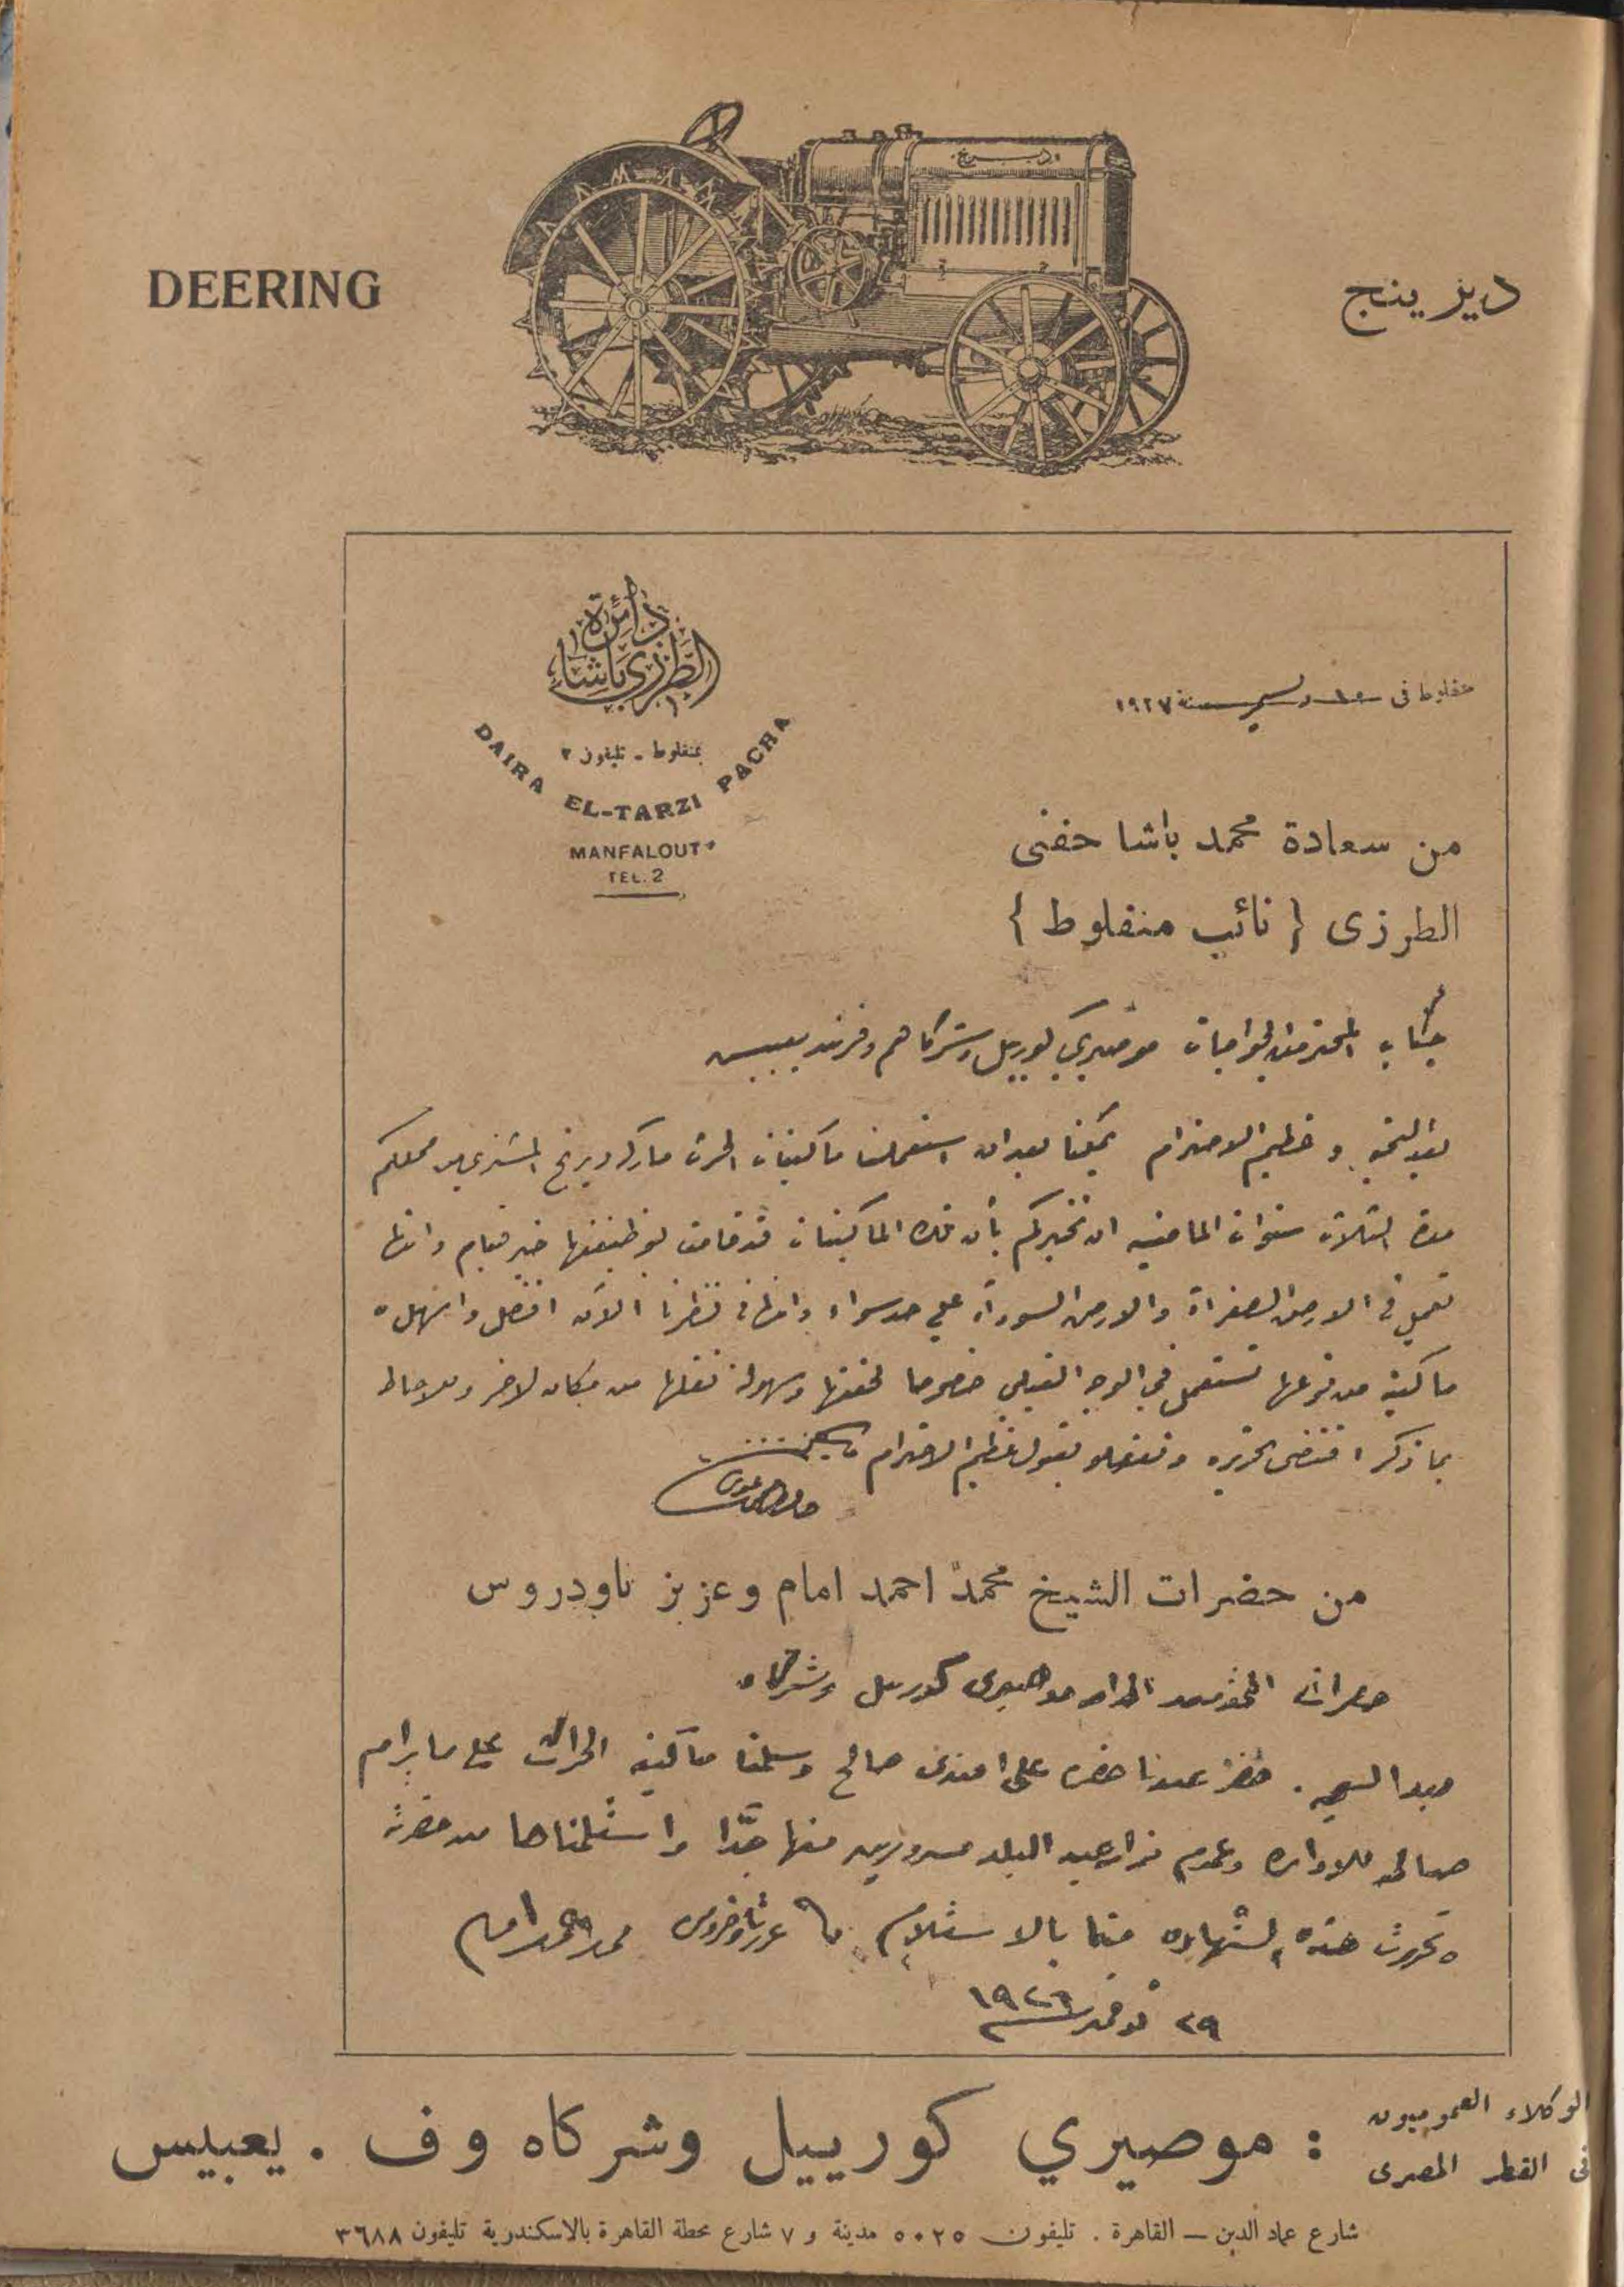 DEERING
ديرينج
ديرينج
دائرة
الطرزي باشا
بمنفلوط - تليفون ٢
DAIRA EL-TARZI PACHA
MANFALOUT
TEL. 2
منفلوط فى ١٥ ديسمبر سنة ١٩٢٧
من سعادة محمد باشا حفنى
الطرزى { نائب منفلوط }
جناب المحترمين الخواجات موصيري كورييل وشركاهم وفرند يعبيس
بعد التحية وعظيم الاحترام يمكننا بعد ان استعملنا ماكينات الحرث ماركه ديرنج المشتري من محلكم
مدة الثلاث سنوات الماضيه ان نخبركم بأن هذه الماكينات قد قامت بوظيفتها خير قيام وانها
تعمل فى الارض الصفراء والارض السوداء على حد سواء وانها فى نظرنا الآن افضل واسهل
ماكينة من نوعها تستعمل في الوجه القبلي خصوصا لخفتها وسهولة نقلها من مكان لاخر وللاحاطه
بما ذكر اقتضى تحريره وتفضلوا بقبول عظيم الاحترام
من حضرات الشيخ محمد احمد امام وعزيز تاودروس
حضرات المحترمين موصيرى كورييل وشركاه
حضر عندنا حضرة على افندى صالح وسلمنا ماكينة الحراث على ما يرام
صالحه للاداره وعموم مزارعين البلد مسرورين منها جدا واستلمناها من حضرته
وتحررت هذه الشهاده منا بالاستلام عزيز تاوضروس محمد احمد امام
٢٩ نوفمبر ١٩٢٦
الوكلاء العموميون
فى القطر المصرى
: موصيري كورييل وشركاه وف . يعبيس
شارع عماد الدين — القاهرة . تليفون ٥٠٢٥ مدينة و ٧ شارع محطة القاهرة بالاسكندرية تليفون ٣٦٨٨